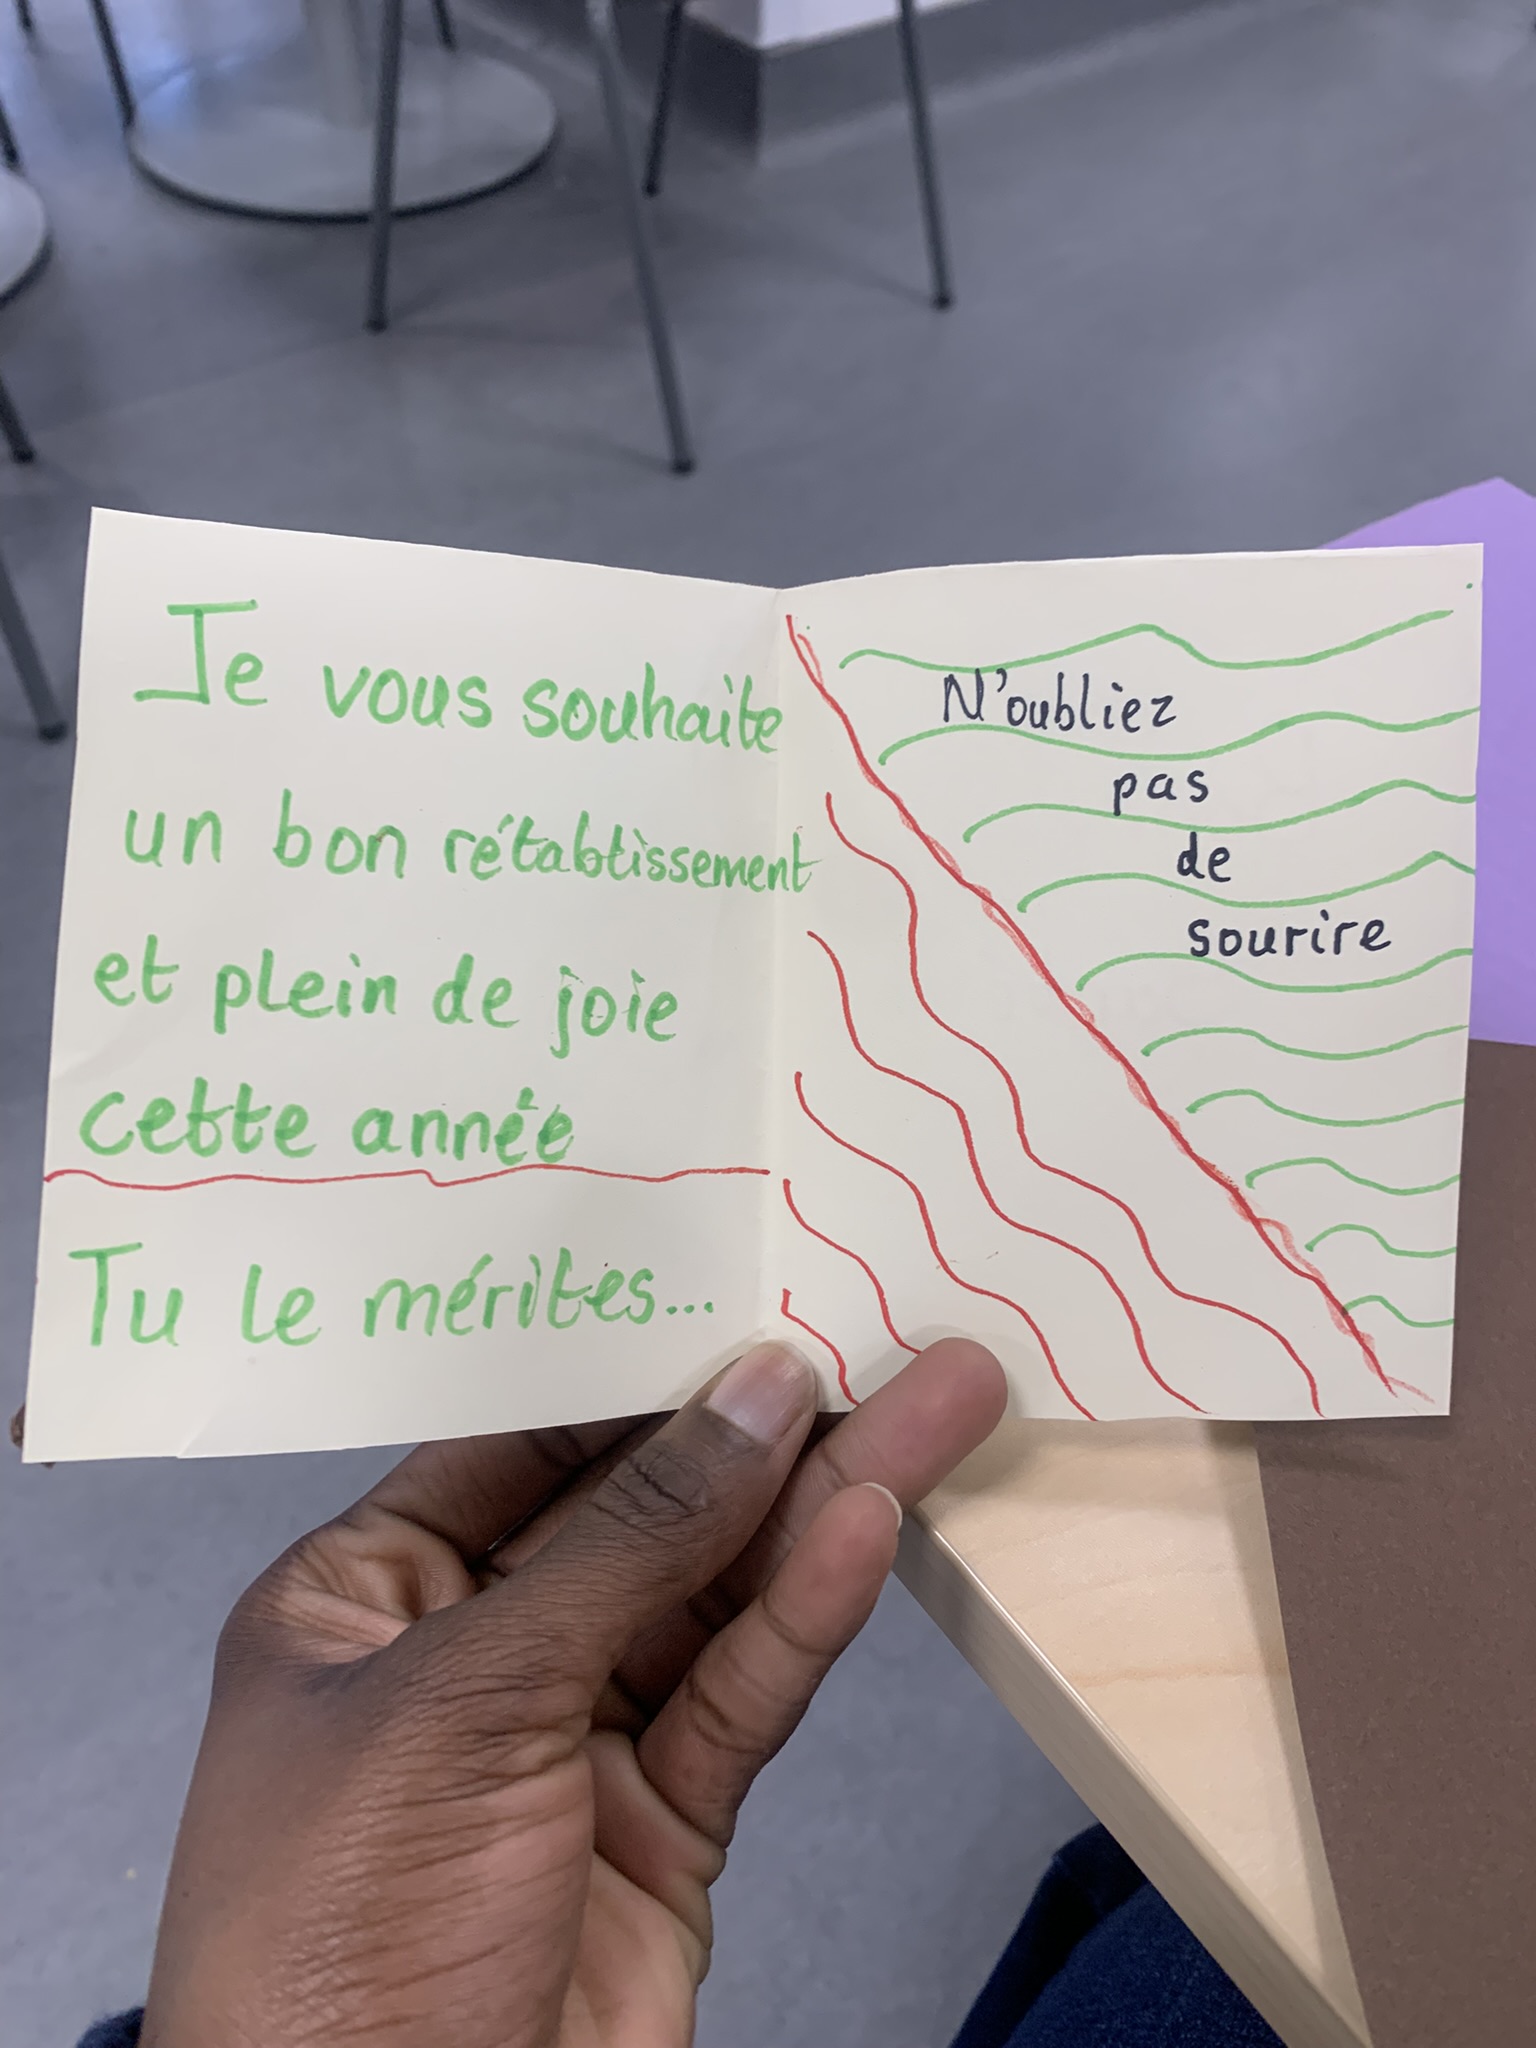 Je vous souhaite
un bon rétablissement
et plein de joie
cette année
Tu le mérites...
N'oubliez
pas
de
sourire